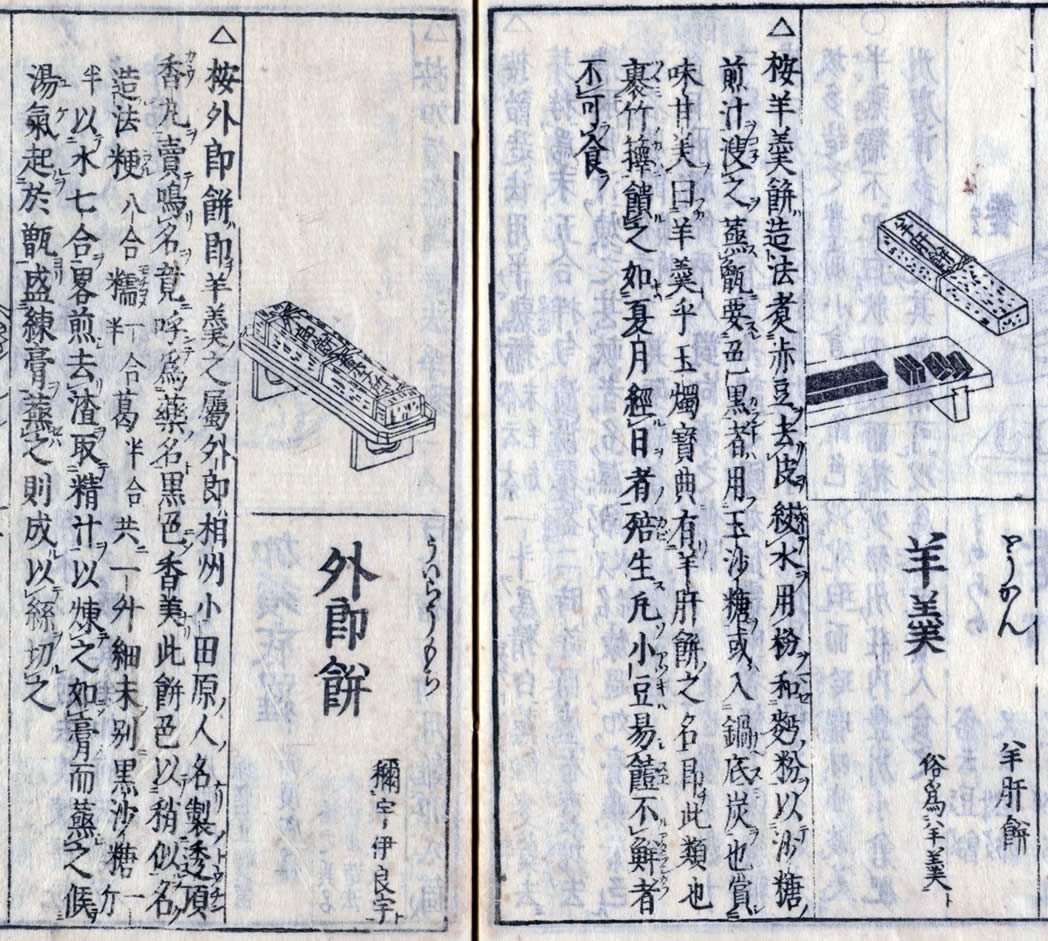 やうかん 羊肝餅
羊羹 俗爲羊羹ト
羊肝餅
△桉羊羹餅造法煑赤豆去皮絞水用粉和麪粉以沙糖
煎汁溲之蒸甑要色黒者用玉沙糖或入鍋底炭也賞
味甘美曰羊羹乎玉燭寶典有羊肝餅之名即此類也
裹竹籜饋之如夏月經日者殕生凡小豆易饐不鮮者
不可食
ういらうもち
外郎餅 穪宇伊良宇
△桉外郎餅即羊羹之屬外郎相州小田原人名製透頂
香丸賣鳴名竟呼爲藥名黒色香美此餅色以稍似名
造法粳八合糯一合半葛半合共一升細末別黒沙糖一斤
半以水七合畧煎去渣取精汁以煉之如膏而蒸之候
湯氣起於甑盛練膏蒸之則成以絲切之